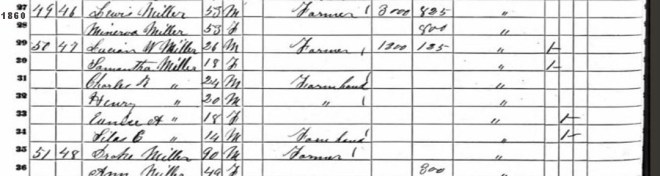 1860
27 49 46 Lewis Miller 53 M Farmer 3000 825 "
Minerva Miller 53 F 800 "
29 50 47 Lucian W Miller 26 M Farmer 1200 125 " 1
30 Samantha Miller 18 F "
31 Charles " 24 M Farm hand "
32 Henry " 20 M " "
33 Eunice A " 18 F " 1
34 Silas C " 14 M Farm hand " 1
35 51 48 Drake Miller 90 M Farmer "
36 Ann Miller 49 F 800 "